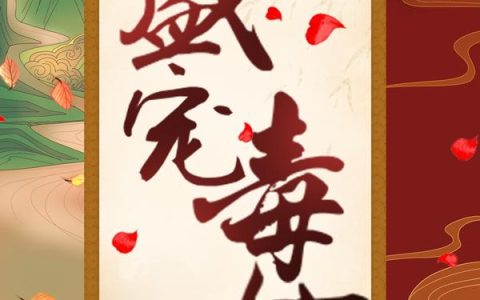 盛宠
毒